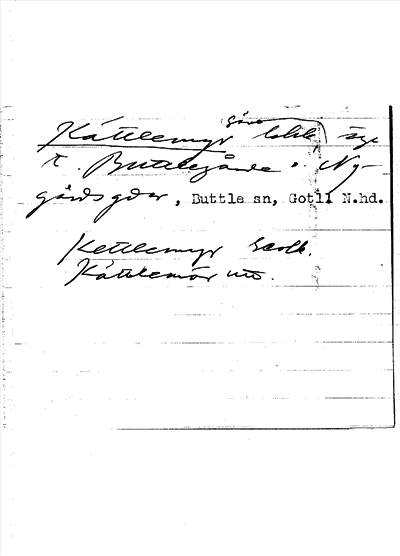 Kättlemyr lokk, äge
t. Buttlegårde o. Ny-
gårds gdar, Buttle sn, Gotll N.hd.
Kettlemyr Seolk.
Kättlemör utt.